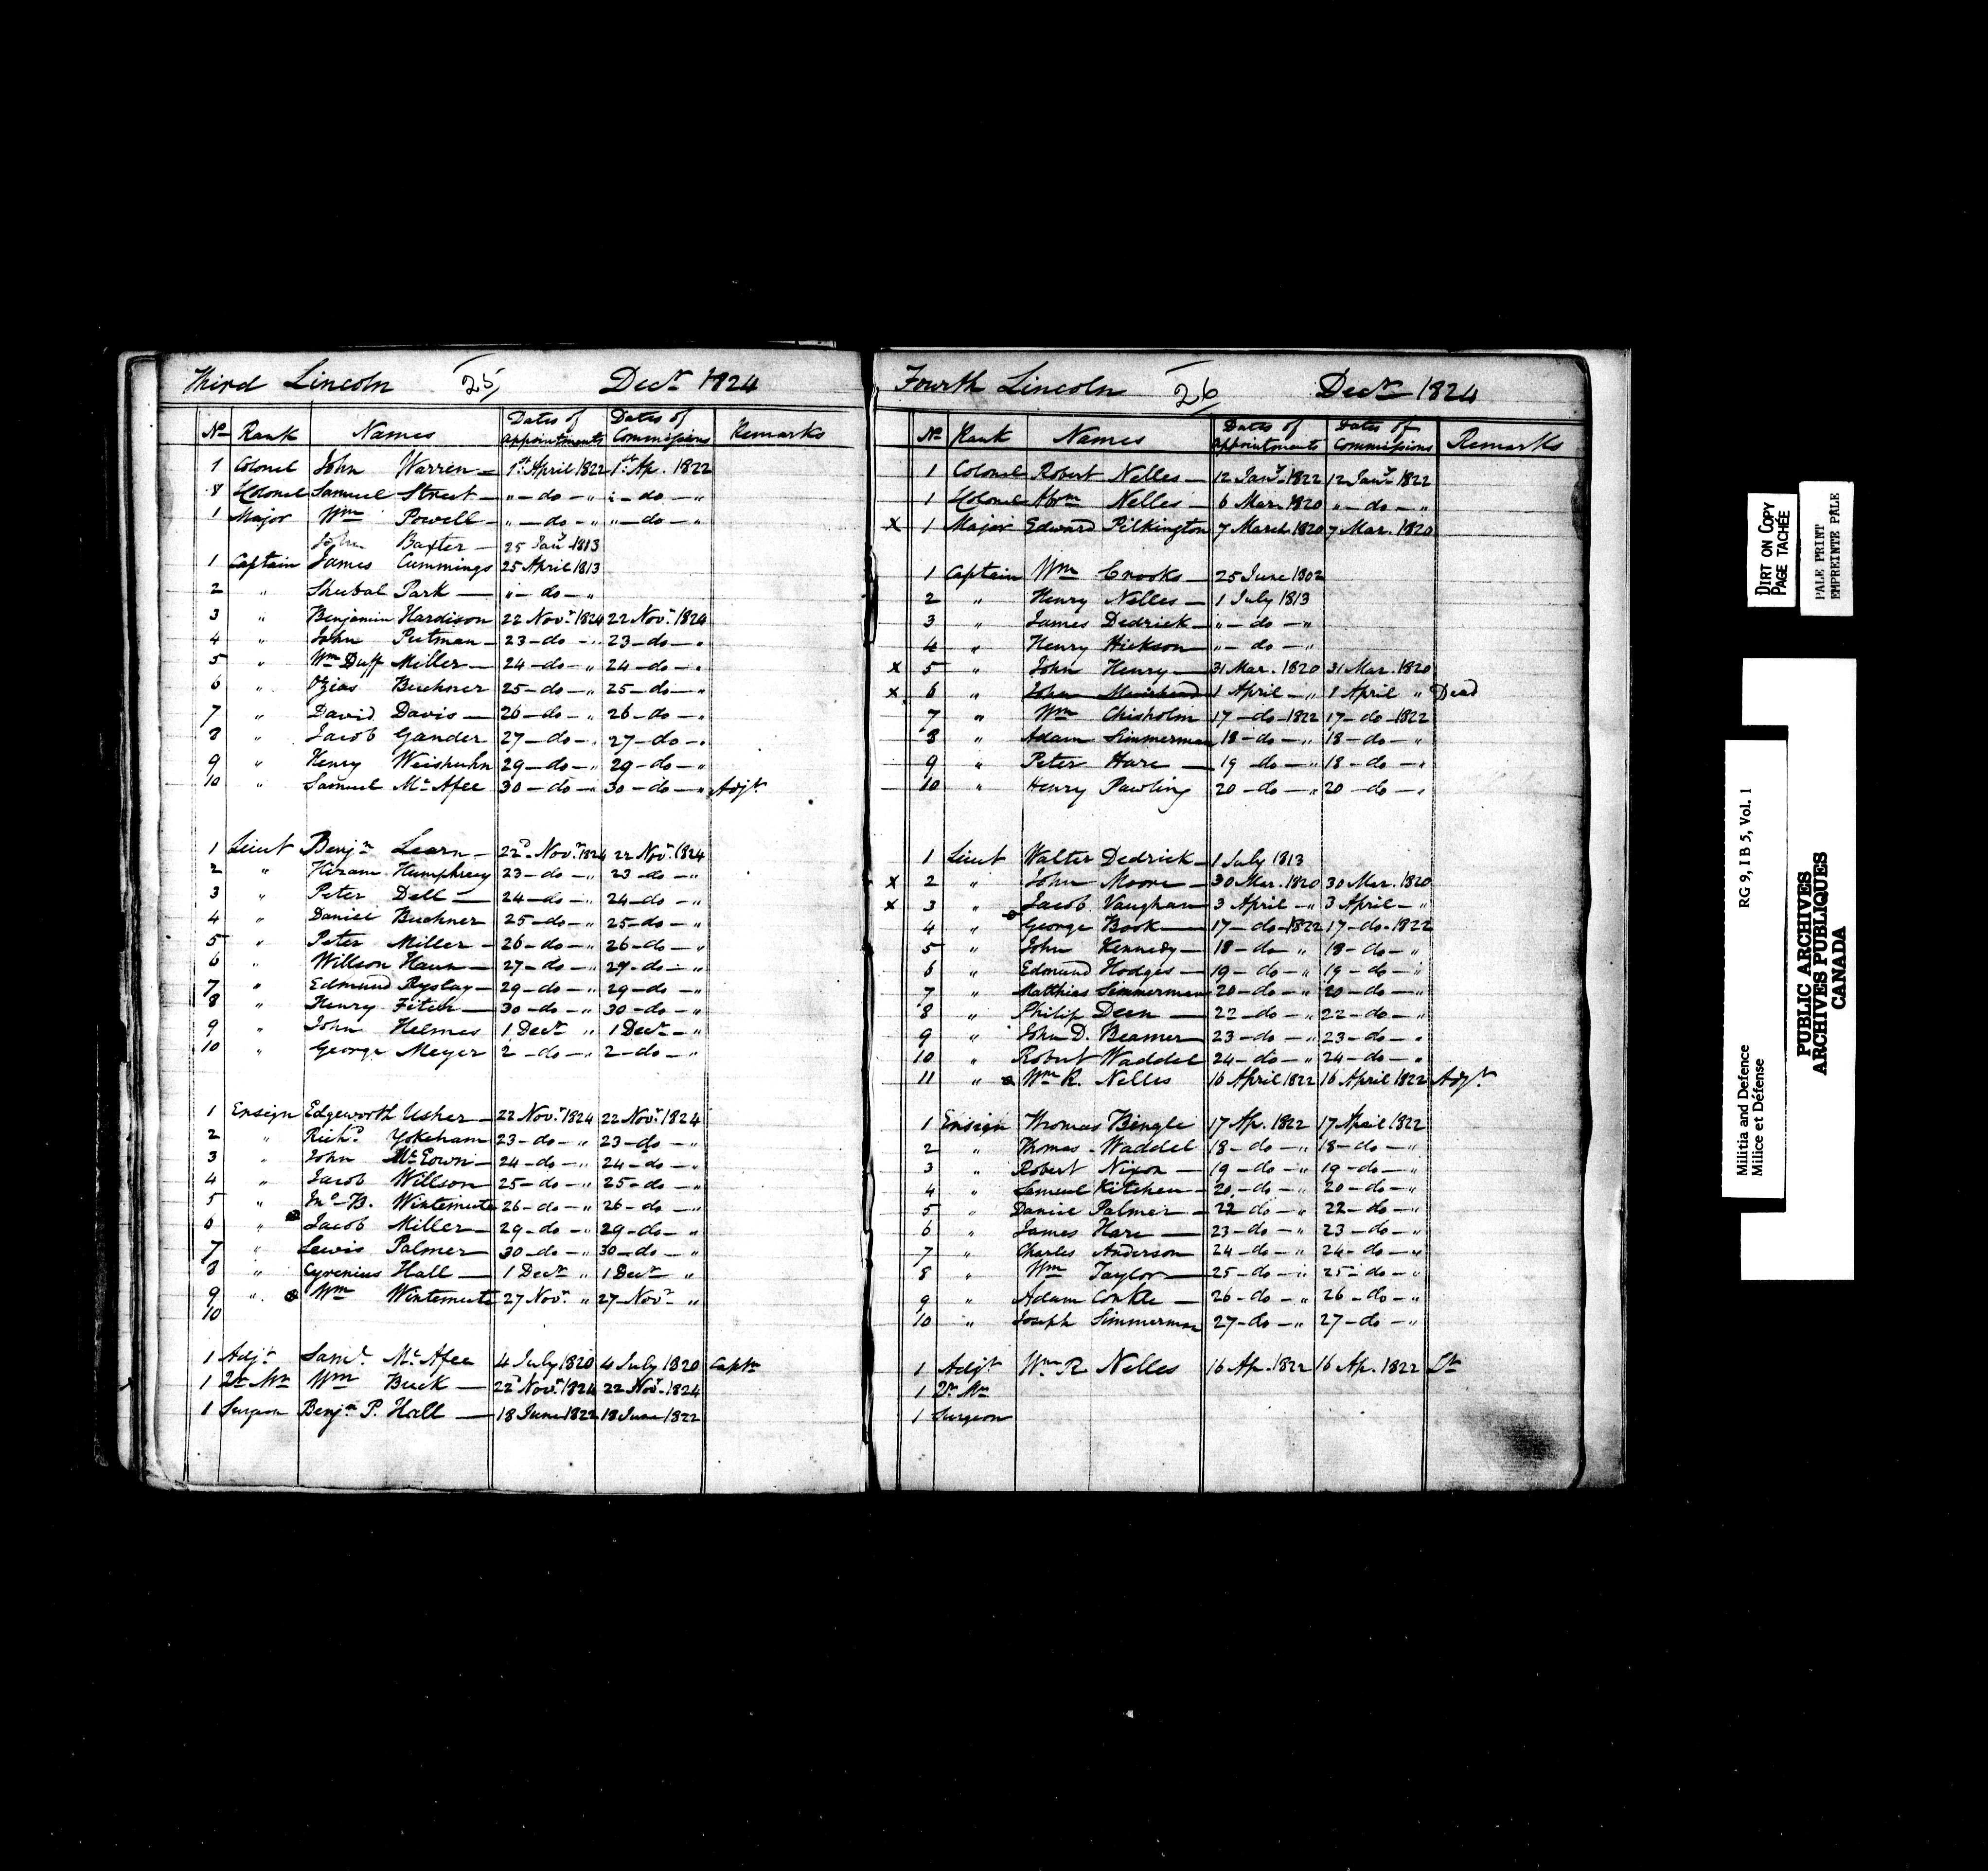 Third Lincoln 25, Decr 1824
No Rank Names Dates of appointments Dates of Commissions Remarks
1 Colonel John Warren — 1st April 1822 1st Ap. 1822
Lt Colonel Samuel Street — " — do — " " — do — "
1 Major Wm Powell — " — do — " " — do — "
John Baxter — 25 Jany 1813
1 Captain James Cummings 25 April 1813
2 " Shubal Park — " — do — "
3 " Benjamin Hardison 22 Novr 1824 22 Novr 1824
4 " John Putman — 23 — do — " 23 — do — "
5 " Wm Duff Miller — 24 — do — " 24 — do — "
6 " Ozias Buchner 25 — do — " 25 — do — "
7 " David Davis — 26 — do — " 26 — do — "
8 " Jacob Gander 27 — do — " 27 — do — "
9 " Henry Weishuhn 29 — do — " 29 — do — "
10 " Samuel McAfee 30 — do — " 30 — do — " Adjt
1 Lieut Benjn Learn — 22d Novr 1824 22 Novr 1824
2 " Hiram Humphrey 23 — do — " 23 — do — "
3 " Peter Dell — 24 — do — " 24 — do — "
4 " Daniel Buchner 25 — do — " 25 — do — "
5 " Peter Miller — 26 — do — " 26 — do — "
6 " Willson Haun — 27 — do — " 27 — do — "
7 " Edmund Ryslay — 29 — do — " 29 — do — "
8 " Henry Fitch — 30 — do — " 30 — do — "
9 " John Helmes 1 Decr " 1 Decr — "
10 " George Meyer 2 — do — " 2 — do — "
1 Ensign Edgeworth Usher — 22 Novr 1824 22 Novr 1824
2 " Richd Yokeham 23 — do — " 23 — do — "
3 " John McEown — 24 — do — " 24 — do — "
4 " Jacob Willson 25 — do — " 25 — do — "
5 " Jno B. Wintemute 26 — do — " 26 — do — "
6 " Jacob Miller — 29 — do — " 29 — do — "
7 " Lewis Palmer 30 — do — " 30 — do — "
8 " Cyrenius Hall — 1 Decr " 1 Decr "
9 " Wm Wintemute 27 Novr " 27 Novr "
10
1 Adjt Saml McAfee 4 July 1820 4 July 1820 Captn
1 Qr Mr Wm Buck — 22d Novr 1824 22 Novr 1824
1 Surgeon Benjn P. Hall — 18 June 1822 18 June 1822
Fourth Lincoln 26 Decr 1824
No Rank Names Dates of appointments Dates of Commissions Remarks
1 Colonel Robert Nelles — 12 Jany 1822 12 Jany 1822
1 Lt Colonel Abrm Nelles — 6 Mar 1820 " — do — "
x 1 Major Edward Pilkington 7 March 1820 7 Mar. 1820
1 Captain Wm Crooks — 25 June 1802
2 " Henry Nelles — 1 July 1813
3 " James Dedrick — " — do — "
4 " Henry Hickson — " — do — "
x 5 " John Henry — 31 Mar. 1820 31 Mar. 1820
x 6 " John Muirhead 1 April — " 1 April " Dead
7 " Wm Chisholm 17 — do — 1822 17 — do — 1822
8 " Adam Simmerman 18 — do — " 18 — do — "
9 " Peter Hare — 19 — do — " 18 — do — "
10 " Henry Pawling 20 — do — " 20 — do — "
1 Lieut Walter Dedrick — 1 July 1813
x 2 " John Moore — 30 Mar. 1820 30 Mar. 1820
x 3 " Jacob Vaughan 3 April — " 3 April — "
4 " George Book — 17 — do — 1822 17 — do — 1822
5 " John Kennedy — 18 — do — " 18 — do — "
6 " Edmund Hodges — 19 — do — " 19 — do — "
7 " Matthias Simmerman 20 — do — " 20 — do — "
8 " Philip Deen — 22 — do — " 22 — do — "
9 " John D. Beamer — 23 — do — " 23 — do — "
10 " Robert Waddel 24 — do — " 24 — do — "
11 " Wm R. Nelles 16 April 1822 16 April 1822 Adjt
1 Ensign Thomas Bingle 17 Ap. 1822 17 April 1822
2 " Thomas Waddel 18 — do — " 18 — do — "
3 " Robert Nixon — 19 — do — " 19 — do — "
4 " Samuel Kitchen — 20 — do — " 20 — do — "
5 " Daniel Palmer — 22 — do — " 22 — do — "
6 " James Hare — 23 — do — " 23 — do — "
7 " Charles Anderson 24 — do — " 24 — do — "
8 " Wm Taylor — 25 — do — " 25 — do — "
9 " Adam Conkle — 26 — do — " 26 — do — "
10 " Joseph Simmerman 27 — do — " 27 — do — "
1 Adjt Wm R Nelles 16 Ap. 1822 16 Ap. 1822 Lt
1 Qr Mr
1 Surgeon
DIRT ON COPY
PAGE TACHÉE
PALE PRINT
EMPREINTE PALE
Militia and Defence RG 9, I B 5, Vol. 1
Milice et Défense
PUBLIC ARCHIVES
ARCHIVES PUBLIQUES
CANADA